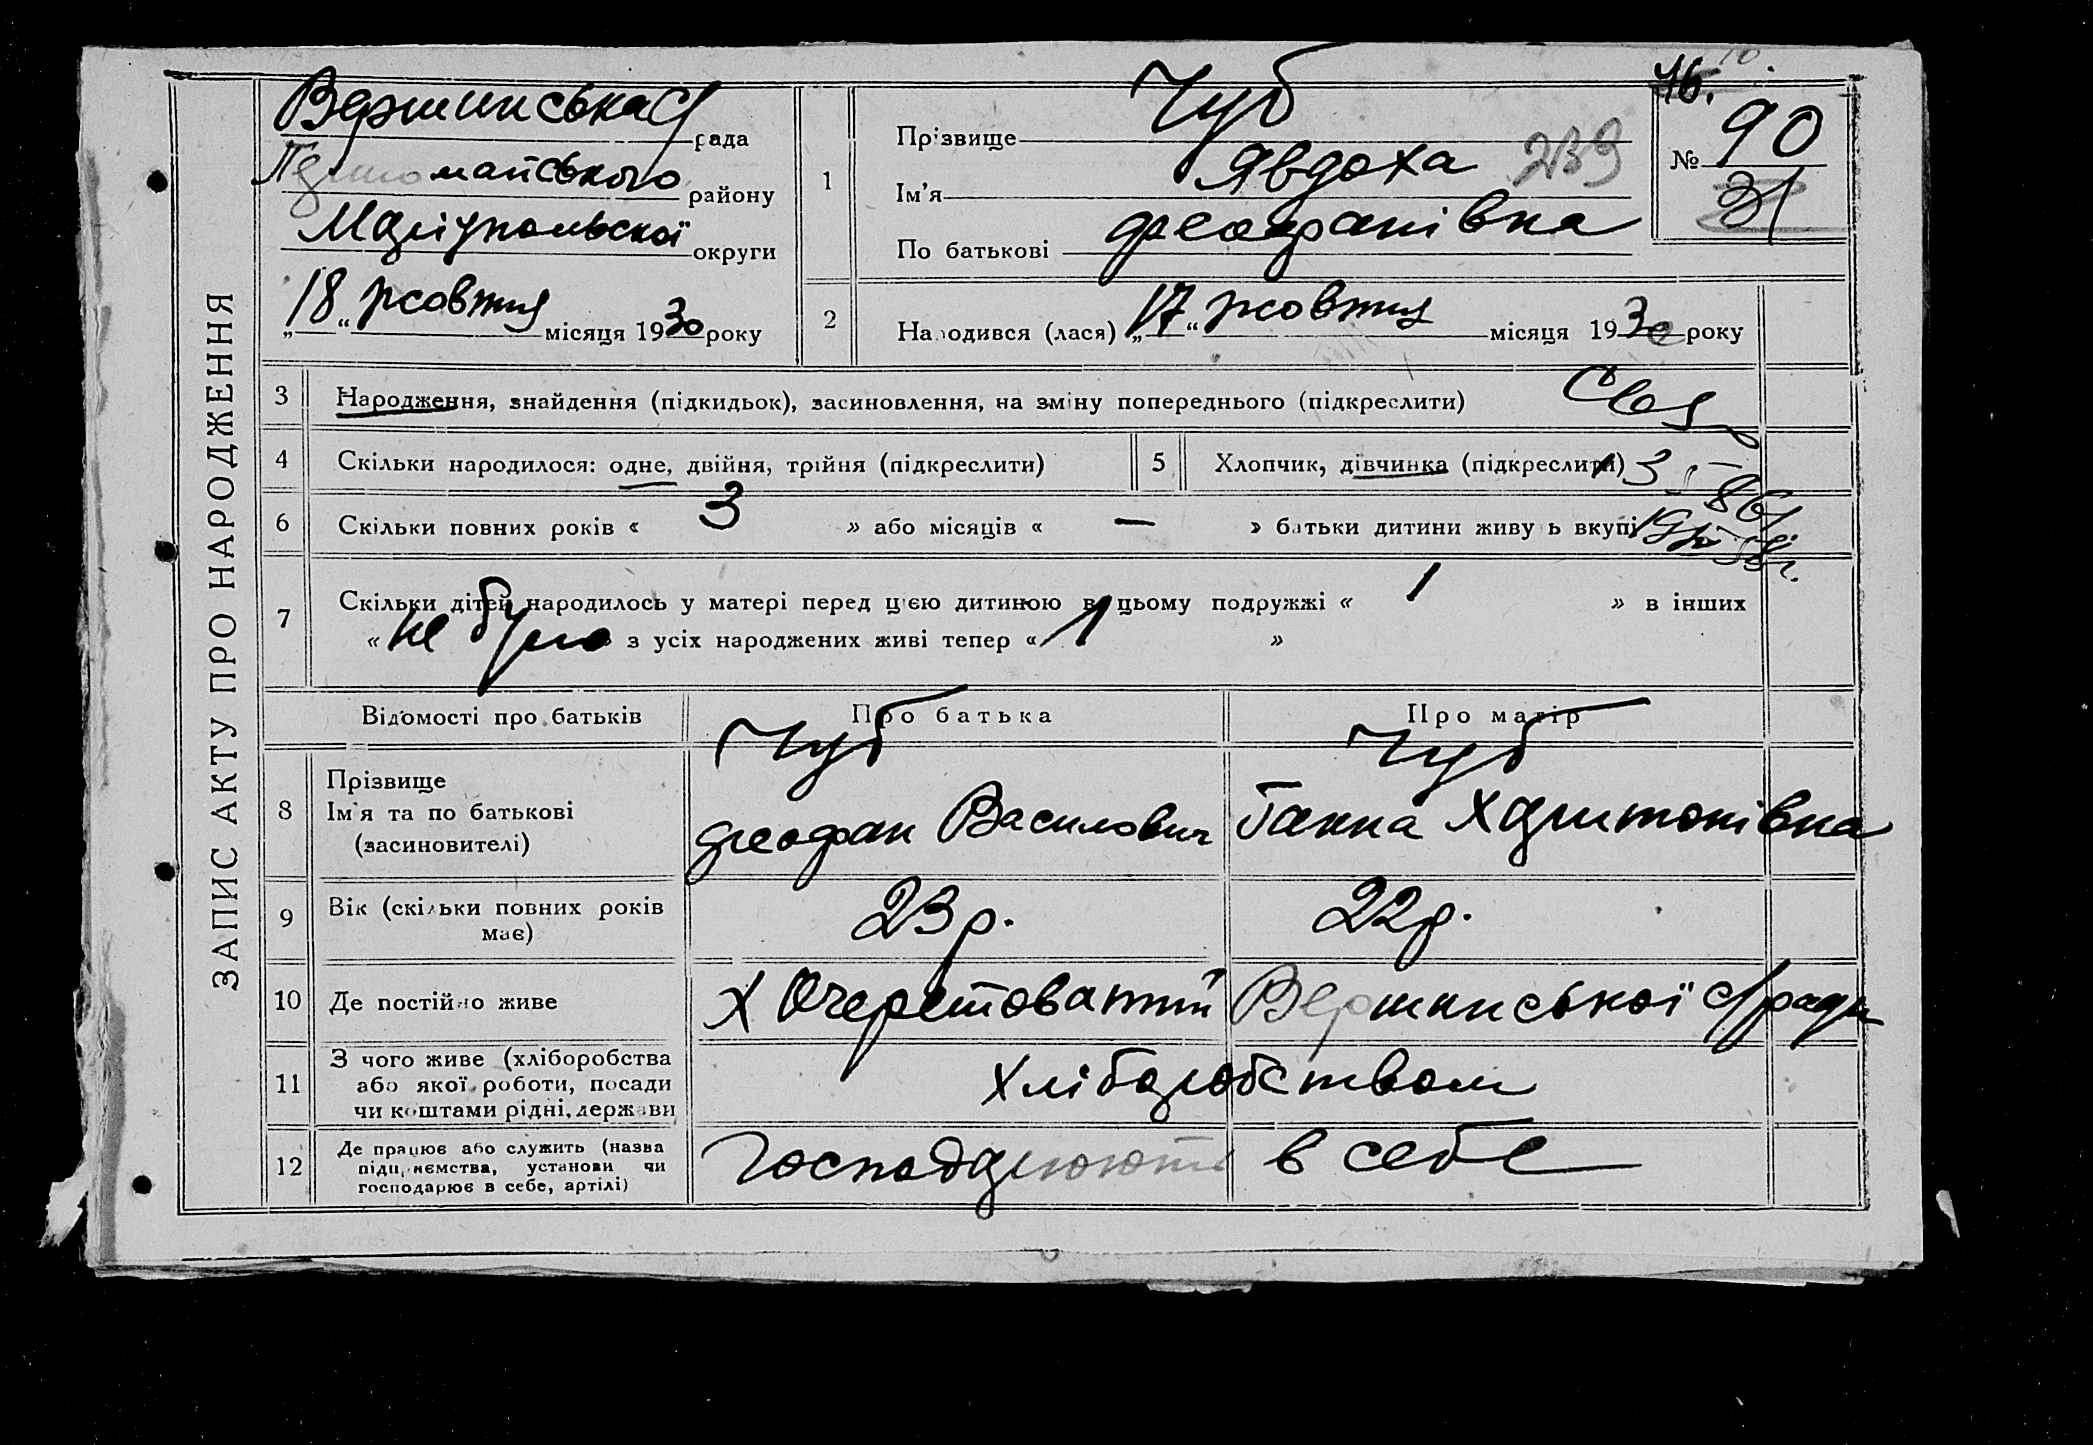 ЗАПИС АКТУ ПРО НАРОДЖЕННЯ
Вершинська с/рада
Першотравенського району
Маріупольської округи
„18“ жовтня місяця 1930 року
1
Прізвище Чуб
Ім'я Явдоха 239
По батькові Феофанівна
46.
№ 90
31
2 Народився (лася) „17“ жовтня місяця 1930 року
3 Народження, знайдення (підкидьок), засиновлення, на зміну попереднього (підкреслити)
4 Скільки народилося: одне, двійня, трійня (підкреслити)
5 Хлопчик, дівчинка (підкреслити)
6 Скільки повних років « 3 » або місяців « — » батьки дитини живуть вкупі
7 Скільки дітей народилось у матері перед цією дитиною в цьому подружжі « 1 » в інших
« не було » з усіх народжених живі тепер « 1 »
Відомості про батьків Про батька Про матір
8 Прізвище
Ім'я та по батькові
(засиновителі)
Чуб
Феофан Василович
Чуб
Ганна Харитонівна
9 Вік (скільки повних років
має)
23 р. 22 р.
10 Де постійно живе Х Очеретоватий Вершинської с/ради
11 З чого живе (хліборобства
або якої роботи, посади
чи коштами рідні, держави
Хліборобством
12 Де працює або служить (назва
підприємства, установи чи
господарює в себе, артілі)
Господарюють в себе